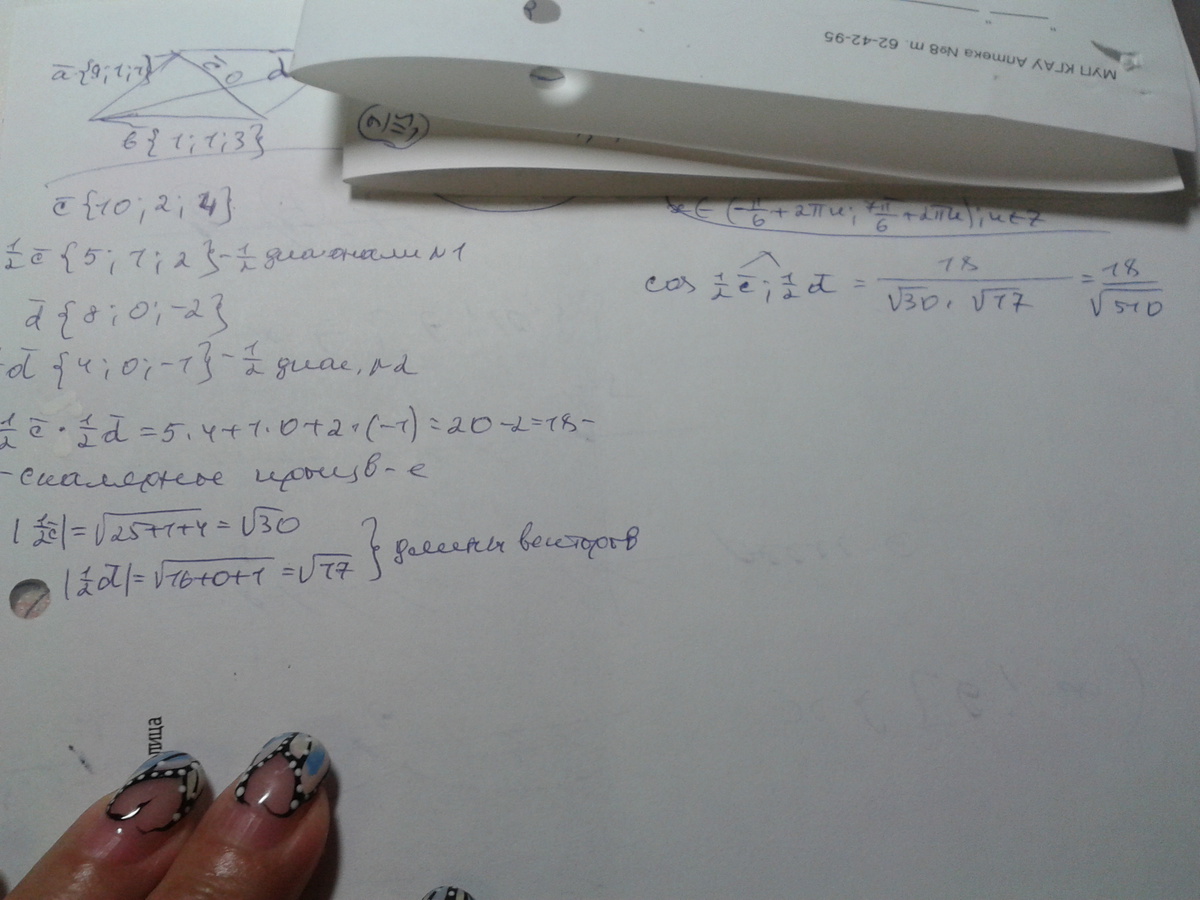 МУП КГАУ Аптека №8 т. 62-42-95
ā {9; 1; 1}
d
в { 1; 1; 3 }
c̄ {10; 2; 4}
½ c̄ { 5; 1; 2 } - ½ диагонали №1
d̄ { 8; 0; -2 }
d̄ { 4; 0; -1 } - ½ диаг. №2
½ c̄ · ½ d̄ = 5·4+1·0+2·(-1) = 20-2=18-
- скалярное произв-е
|½c̄| = √25+1+4 = √30
|½d̄| = √16+0+1 = √17 } длины векторов
x ∈ (-π/6 + 2πn; 7π/6 + 2πn); n∈Z
cos ½ c̄; ½ d̄ = 18/(√30 · √17) = 18/√510
лица